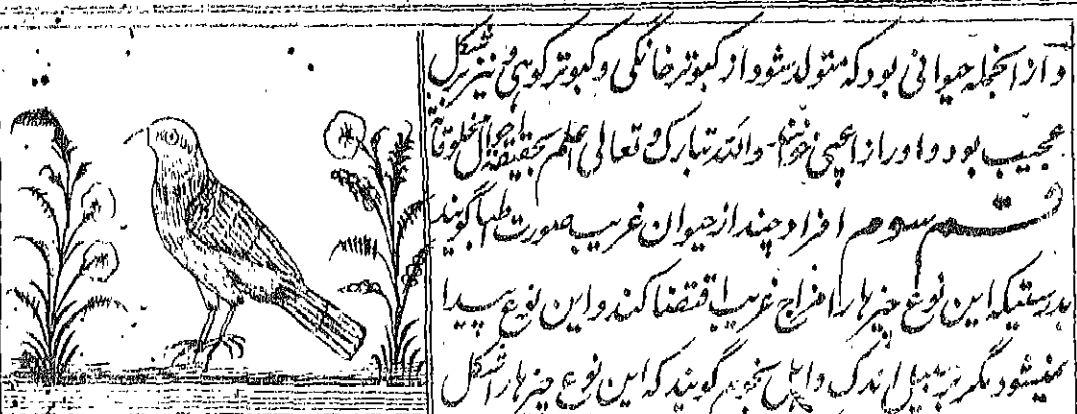 و از آنجمله حیوانی بود که متولد شود از کبوتر خانگی و کبوتر کوهی و نیز بر شکل
عجیب بود و او را راعبی خوانند والله تبارک و تعالی اعلم بحقیقة احوال مخلوقاته
قسم سوم افراد چند از حیوان غریب صورت اطبا گویند
بدرستیکه این نوع چیزها را مزاج غریب اقتضا کند و این نوع پیدا
نمیشود مگر بر سبیل اندک و اهل نجوم گویند که این نوع چیزها را شکل